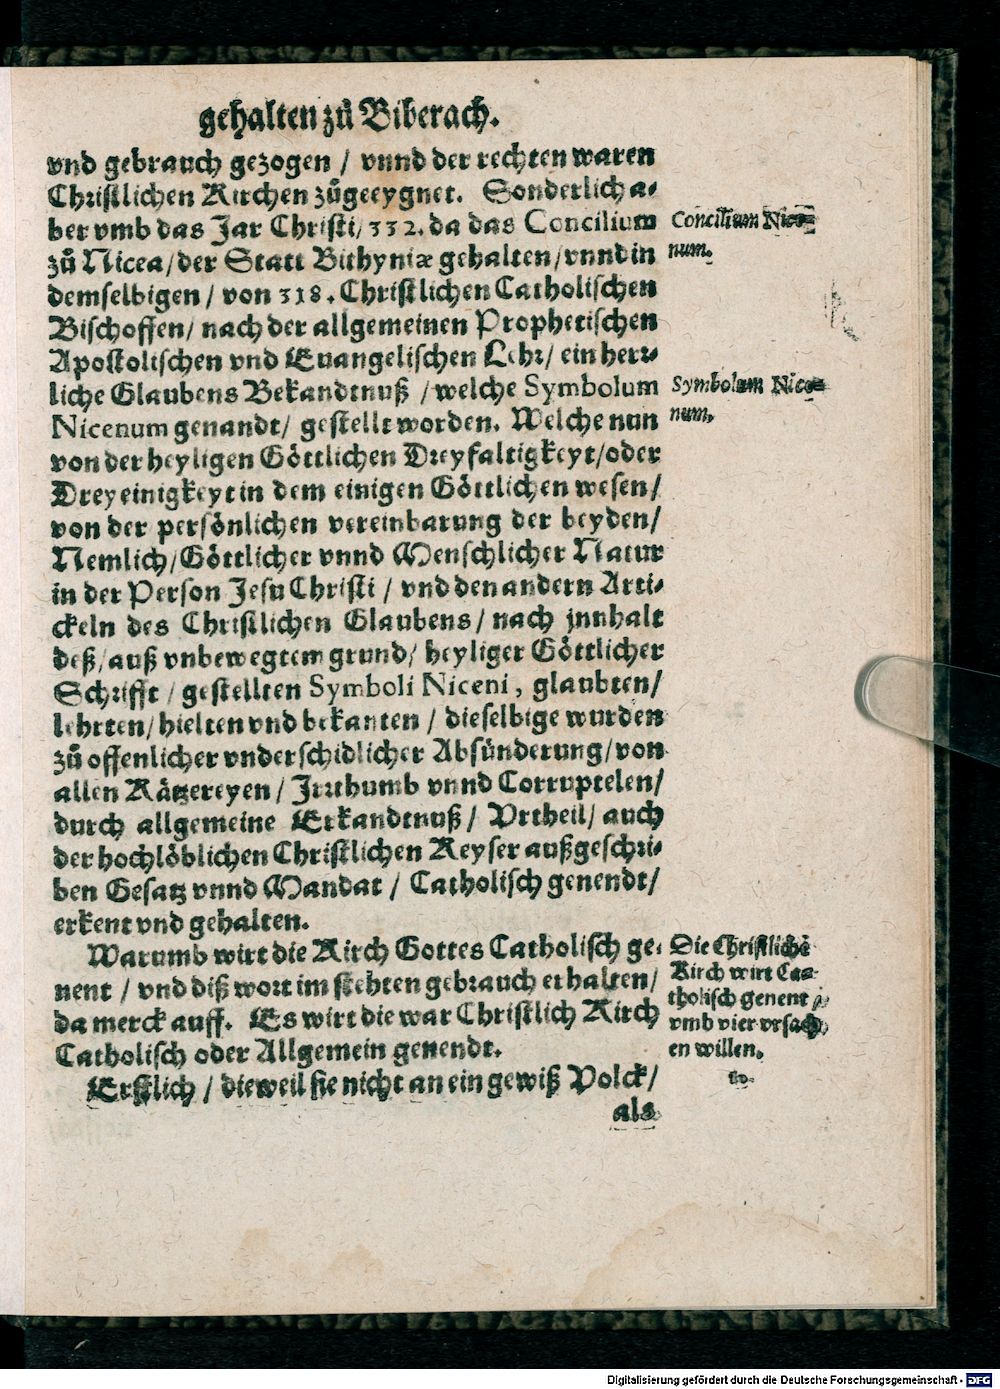 gehalten zů Biberach.
vnd gebrauch gezogen / vnnd der rechten waren
Christlichen Kirchen zůgeeygnet. Sonderlich a-
ber vmb das Jar Christi/332. da das Concilium
zů Nicea/der Statt Bithyniæ gehalten/vnnd in
demselbigen / von 318. Christlichen Catholischen
Bischoffen/ nach der allgemeinen Prophetischen
Apostolischen vnd Euangelischen Lehr/ ein herr-
liche Glaubens Bekandtnuß /welche Symbolum
Nicenum genandt/ gestellt worden. Welche nun
von der heyligen Göttlichen Dreyfaltigkeyt/oder
Dreyeinigkeyt in dem einigen Göttlichen wesen/
von der persönlichen vereinbarung der beyden/
Nemlich/Göttlicher vnnd Menschlicher Natur
in der Person Jesu Christi / vnd den andern Arti-
ckeln des Christlichen Glaubens/ nach jnnhalt
deß/auß vnbewegtem grund/ heyliger Göttlicher
Schrifft / gestellten Symboli Niceni, glaubten/
lehrten/hielten vnd bekanten / dieselbige wurden
zů offenlicher vnderschidlicher Absünderung/von
allen Kätzereyen/ Irrthumb vnnd Corruptelen/
durch allgemeine Erkandtnuß/ Vrtheil/ auch
der hochlöblichen Christlichen Keyser außgeschri-
ben Gesatz vnnd Mandat / Catholisch genendt/
erkent vnd gehalten.
Warumb wirt die Kirch Gottes Catholisch ge-
nent / vnd diß wort im stehten gebrauch erhalten/
da merck auff. Es wirt die war Christlich Kirch
Catholisch oder Allgemein genendt.
Erstlich / dieweil sie nicht an ein gewiß Volck/
als
Concilium Nice-
num.
Symbolum Nice-
num.
Die Christlichē
Kirch wirt Ca-
tholisch genent
vmb vier vrsach
en willen.
Digitalisierung gefördert durch die Deutsche Forschungsgemeinschaft - DFG